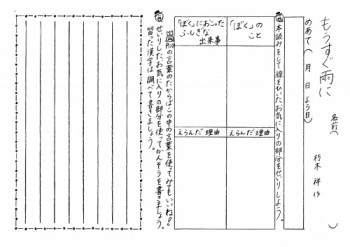 もうすぐ雨に
名前(
朽木 祥 作
)
めあて( 月 日 よう日)
本読みをして線をひいたお気に入りの部分をせいりしよう。
「ぼく」の
こと
「ぼく」におこった
ふしぎな
出来事
えらんだ理由
えらんだ理由
の言葉のたからばこの中の言葉を使ってみてもいいね♪
せいりしたお気に入りの部分を使ってかんそうを書きましょう。
習った漢字は調べて書きましょう。